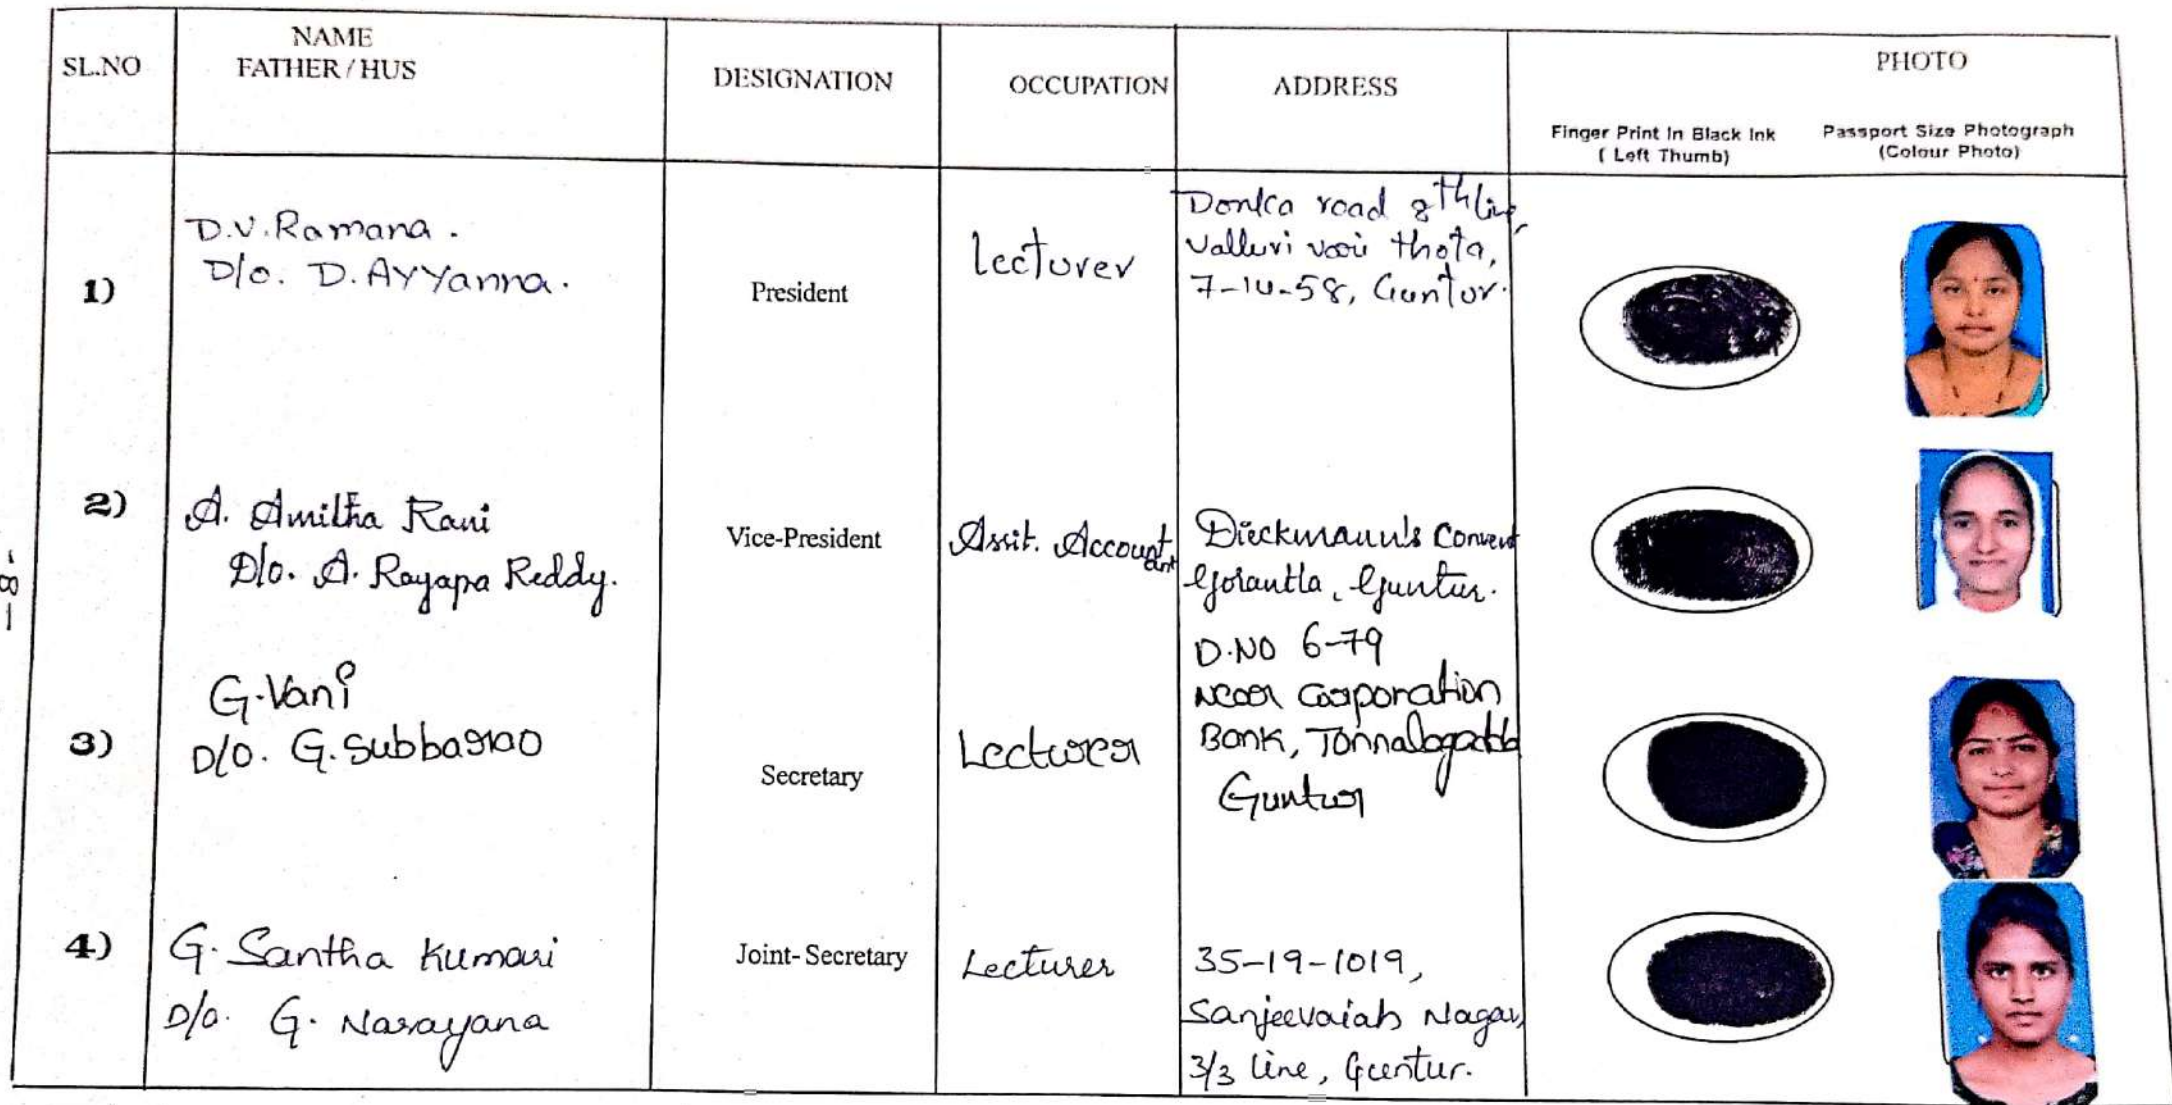 SL.NO
NAME
FATHER / HUS
DESIGNATION
OCCUPATION
ADDRESS
PHOTO
Finger Print In Black Ink
( Left Thumb)
Passport Size Photograph
(Colour Photo)
1)
D.V.Ramana.
D/o. D. AYYanna.
President
Lecturer
Donka road 8th line,
Valluri vari thota,
7-10-58, Guntur.
2)
A. Amitha Rani
D/o. A. Rayapa Reddy.
Vice-President
Assit. Accountant
Dieckmann's Convent
Gorantla, Guntur.
3)
G.Vani
D/O. G.Subbarao
Secretary
Lecturer
D.NO 6-79
Near Corporation
Bank,
Guntur
4)
G. Santha Kumari
D/o. G. Narayana
Joint- Secretary
Lecturer
35-19-1019,
Sanjeevaiah Nagar,
3/3 line, Guntur.
-8-